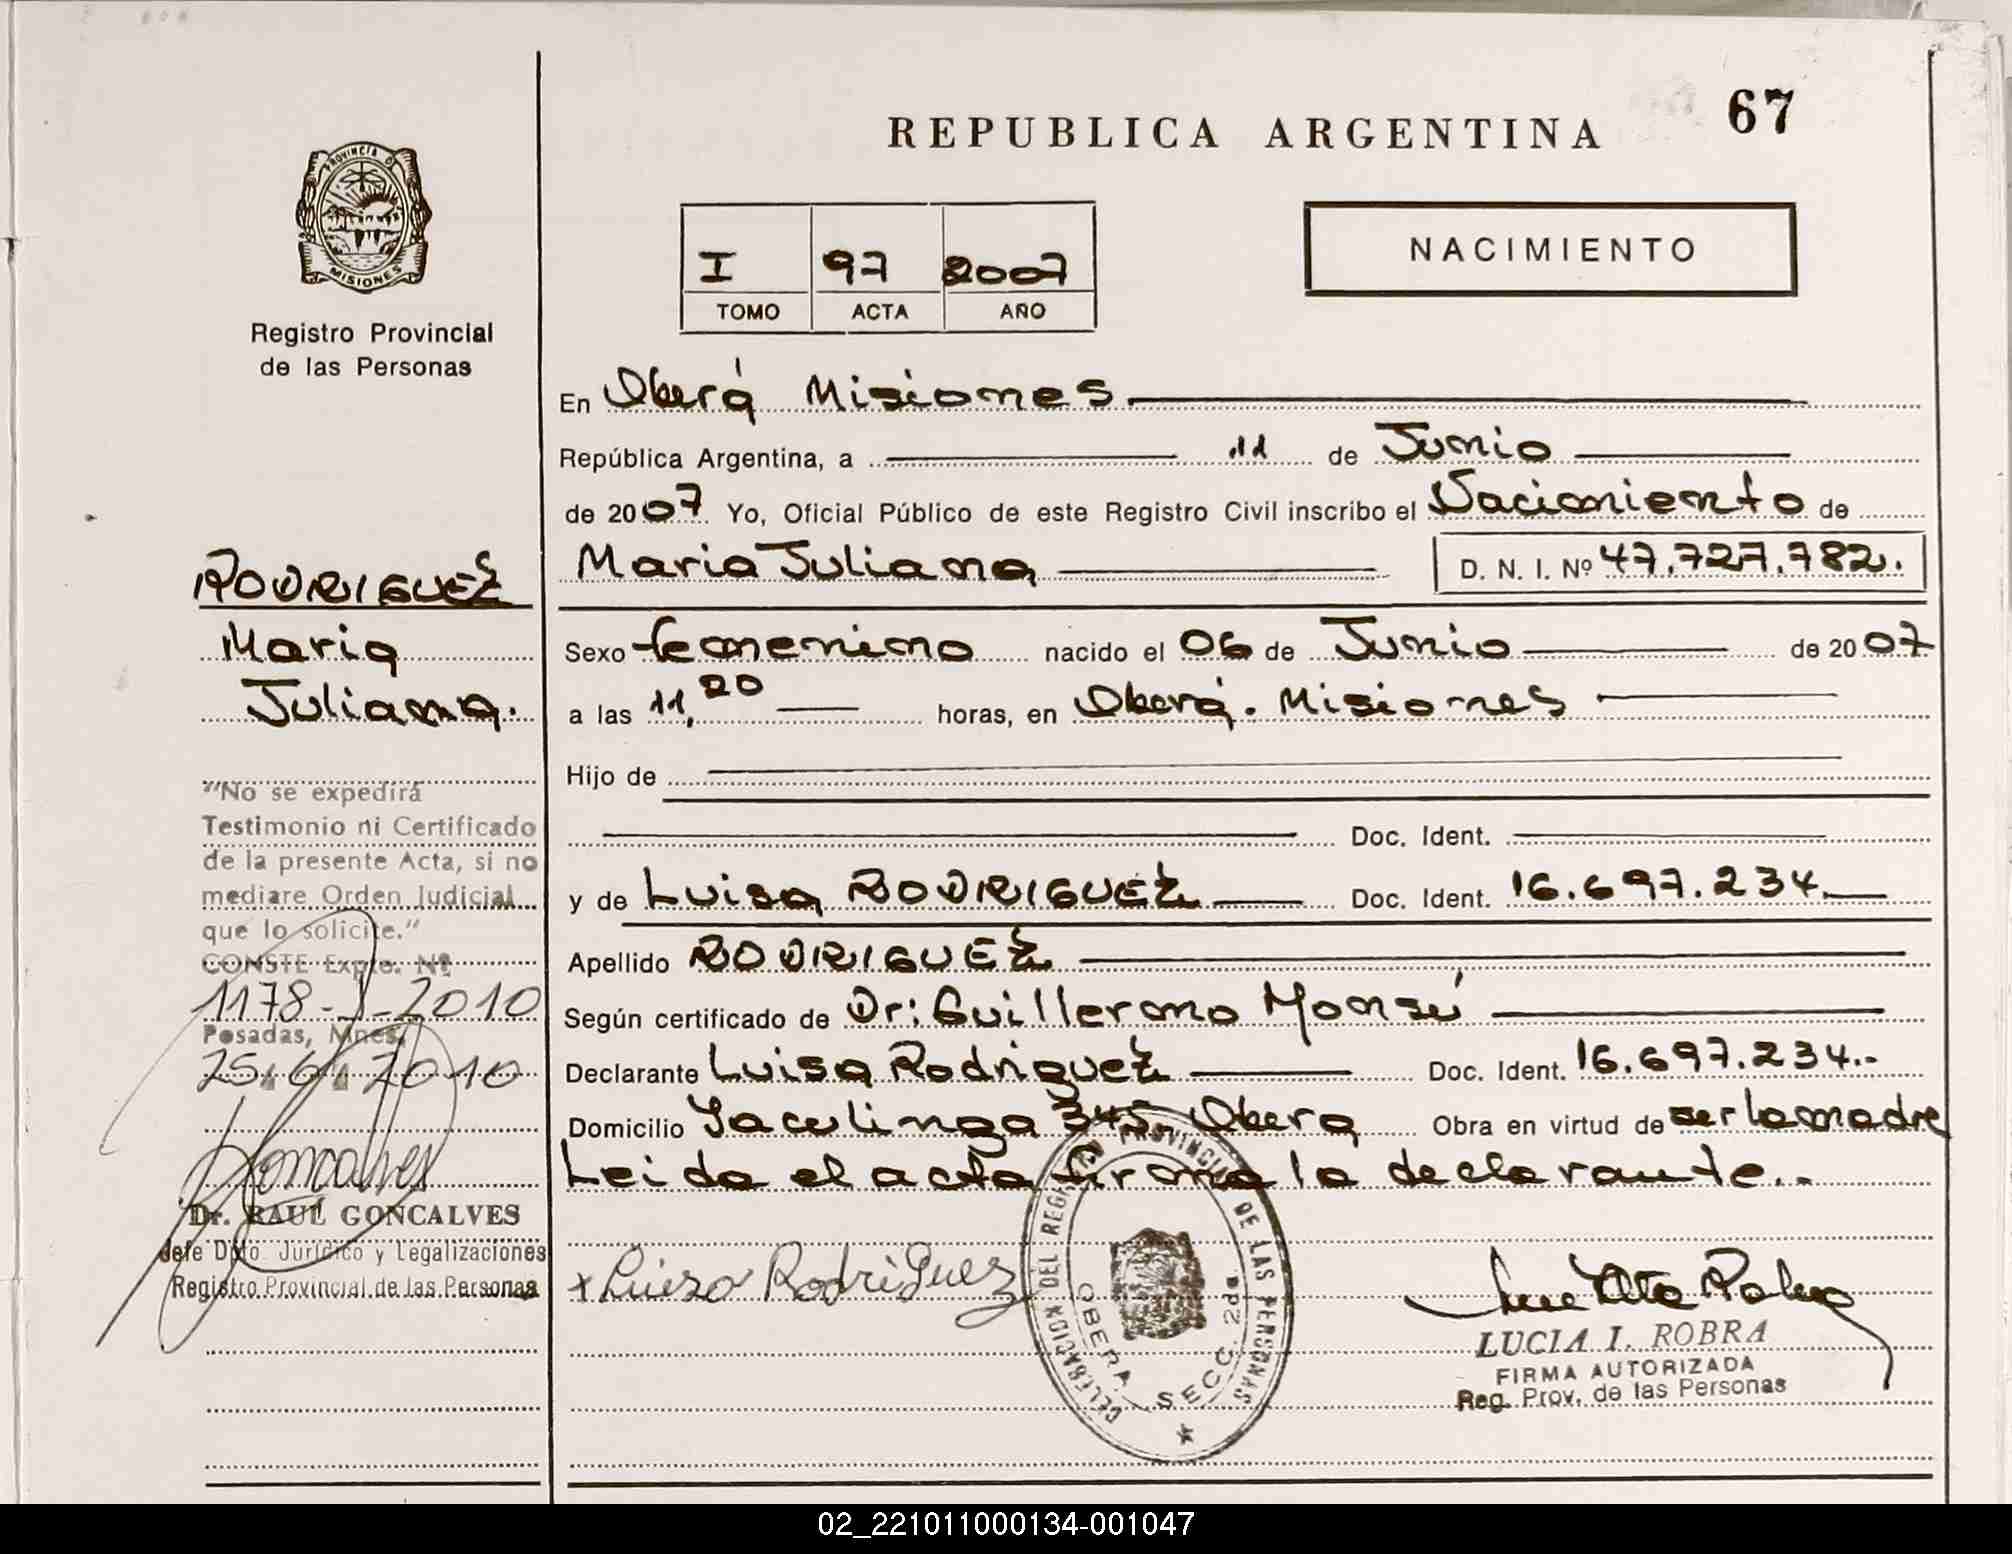 67
REPUBLICA ARGENTINA
PROVINCIA DE
MISIONES
Registro Provincial
de las Personas
I 97 2007
TOMO ACTA AÑO
NACIMIENTO
En Oberá Misiones
República Argentina, a 11 de Junio
de 2007 Yo, Oficial Público de este Registro Civil inscribo el Nacimiento de
Maria Juliana D. N. I. Nº 47.727.782.
Sexo femenino nacido el 06 de Junio de 2007
a las 11,20 horas, en Oberá. Misiones
Hijo de
Doc. Ident.
y de Luisa RODRIGUEZ Doc. Ident. 16.697.234
Apellido RODRIGUEZ
Según certificado de Dr: Guillermo Monsú
Declarante Luisa Rodriguez Doc. Ident. 16.697.234.-
Domicilio 345, Oberá Obra en virtud de ser la madre
Leida el acta firma la declarante..
x Luisa Rodriguez
LUCIA I. ROBRA
FIRMA AUTORIZADA
Reg. Prov. de las Personas
DELEGACION DEL REGISTRO PROVINCIAL DE LAS PERSONAS
OBERA SECC. 2da.
RODRIGUEZ
Maria
Juliana.
"No se expedirá
Testimonio ni Certificado
de la presente Acta, si no
mediare Orden Judicial
que lo solicite."
CONSTE Expte. Nº
1178-J-2010
Posadas, Mnes.
25/6/2010
Goncalves
Dr. RAUL GONCALVES
Jefe Dpto. Jurídico y Legalizaciones
Registro Provincial de las Personas
02_221011000134-001047